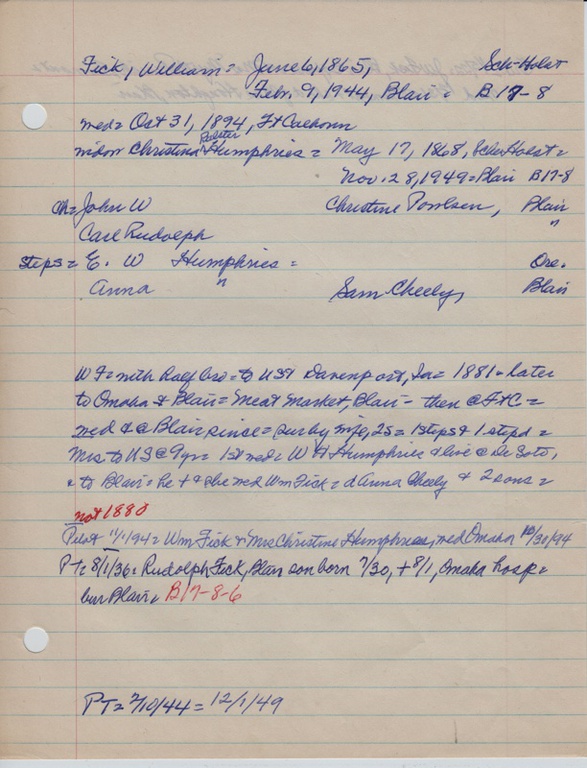 Fick, William = June 6, 1865, Sch-Holst
Febr. 9, 1944, Blair = B 17-8
med = Oct 31, 1894, Ft Calhoun
widow Christina Humphries = May 17, 1868, Sch Holst =
Nov. 28, 1949 = Blair B17-8
Ch = John W Christine Poulsen, Blair
Carl Rudolph "
Steps = E. W Humphries = Ore.
Anna " Sam Cheely, Blair
W F = with half bro = to US & Davenport, Ia = 1881 = later
to Omaha & Blair = Meat Market, Blair = then @ Ft C =
med & @ Blair since = sur by wife, 2S = 1 steps & 1 stepd =
Mrs to US @ 9 yr = 1st med = W H Humphries & live @ De Soto,
& to Blair = he + & she med Wm Fick = d Anna Cheely & 2 sons =
not 1880
Pilot 11/1/94 = Wm Fick & Mrs Christine Humphries, med Omaha 10/30/94
PT = 8/1/36 = Rudolph Fick, Blair son born 7/30, + 8/1, Omaha hosp =
bur Blair = B17-8-6
PT = 2/10/44 = 12/1/49